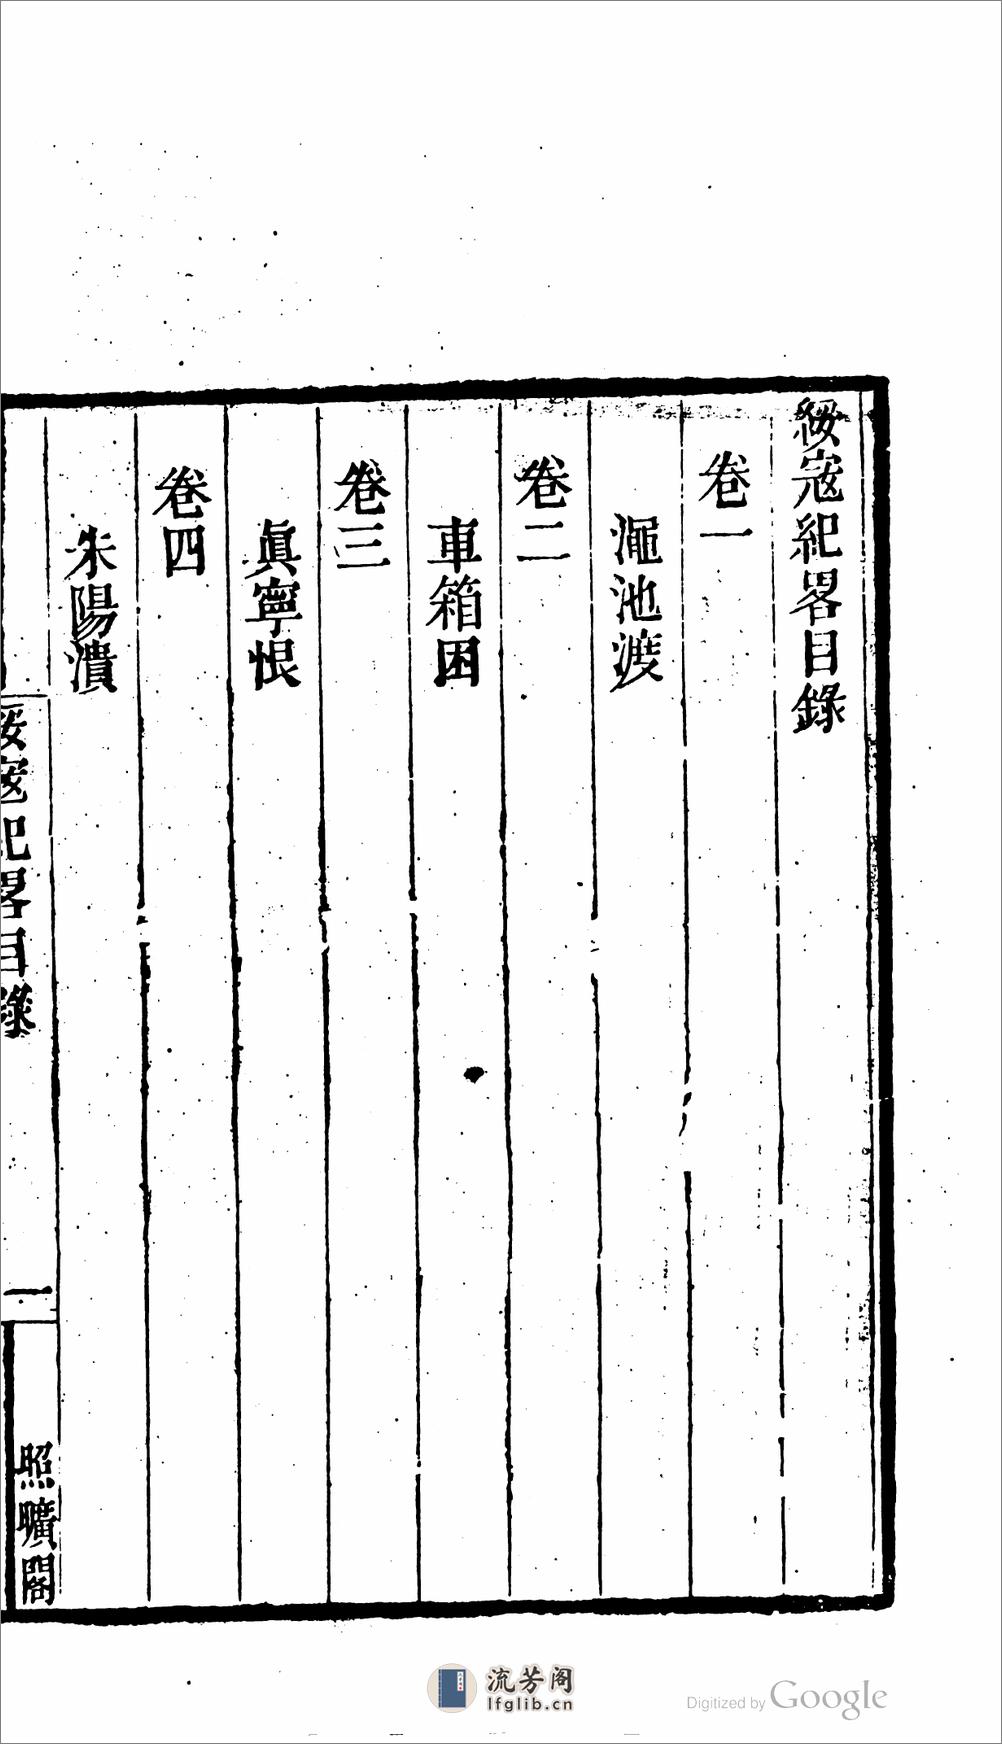 綏寇紀畧目錄
卷一
澠池渡
卷二
車箱困
卷三
眞寧恨
卷四
朱陽潰
綏寇紀畧目錄
一
照曠閣
流芳阁
lfglib.cn
Digitized by Google